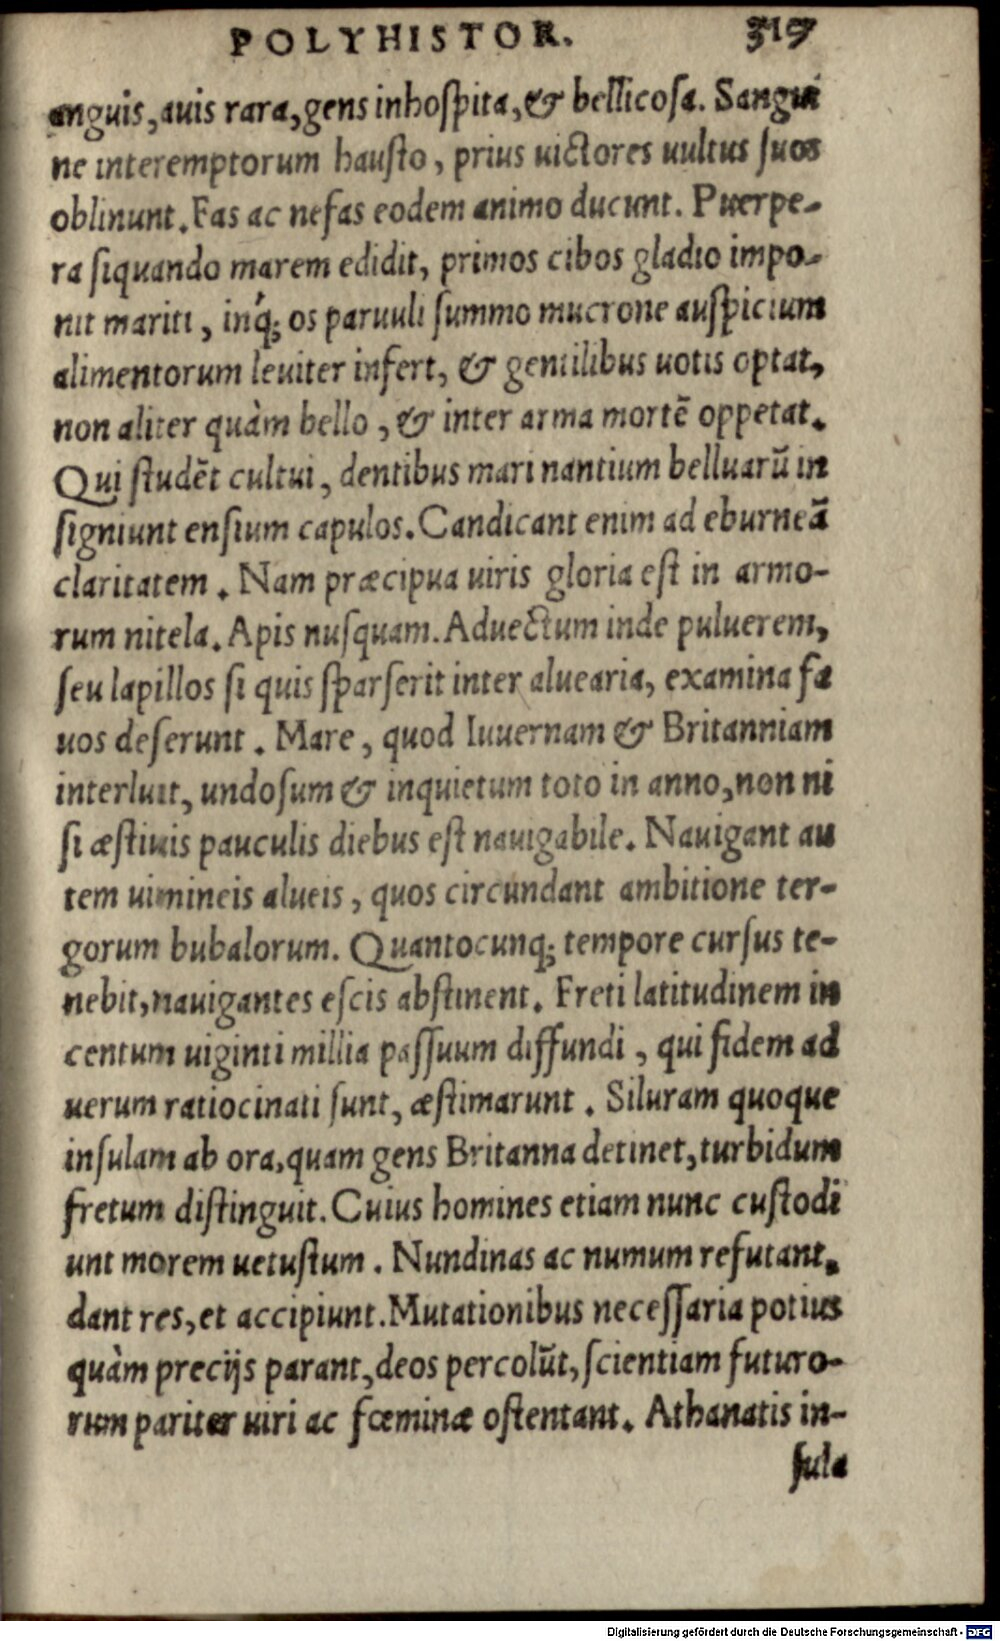 POLYHISTOR. 319
anguis, auis rara, gens inhoſpita, & bellicoſa. Sangui
ne interemptorum hauſto, prius uictores uultus ſuos
oblinunt. Fas ac nefas eodem animo ducunt. Puerpe-
ra ſiquando marem edidit, primos cibos gladio impo-
nit mariti, inq́; os paruuli ſummo mucrone auſpicium
alimentorum leuiter infert, & gentilibus uotis optat,
non aliter quàm bello, & inter arma mortē oppetat.
Qui ſtudēt cultui, dentibus mari nantium belluarū in
ſigniunt enſium capulos. Candicant enim ad eburneā
claritatem. Nam præcipua uiris gloria eſt in armo-
rum nitela. Apis nuſquam. Aduectum inde puluerem,
ſeu lapillos ſi quis ſparſerit inter aluearia, examina fa
uos deſerunt. Mare, quod Iuuernam & Britanniam
interluit, undoſum & inquietum toto in anno, non ni
ſi æſtiuis pauculis diebus eſt nauigabile. Nauigant au
tem uimineis alueis, quos circundant ambitione ter-
gorum bubalorum. Quantocunq; tempore curſus te-
nebit, nauigantes eſcis abſtinent. Freti latitudinem in
centum uiginti millia paſſuum diffundi, qui fidem ad
uerum ratiocinati ſunt, æſtimarunt. Siluram quoque
inſulam ab ora, quam gens Britanna detinet, turbidum
fretum diſtinguit. Cuius homines etiam nunc cuſtodi
unt morem uetuſtum. Nundinas ac numum refutant.
dant res, et accipiunt. Mutationibus neceſſaria potius
quàm precijs parant, deos percolūt, ſcientiam futuro-
rum pariter uiri ac fœminæ oſtentant. Athanatis in-
ſula
Digitalisierung gefördert durch die Deutsche Forschungsgemeinschaft - DFG